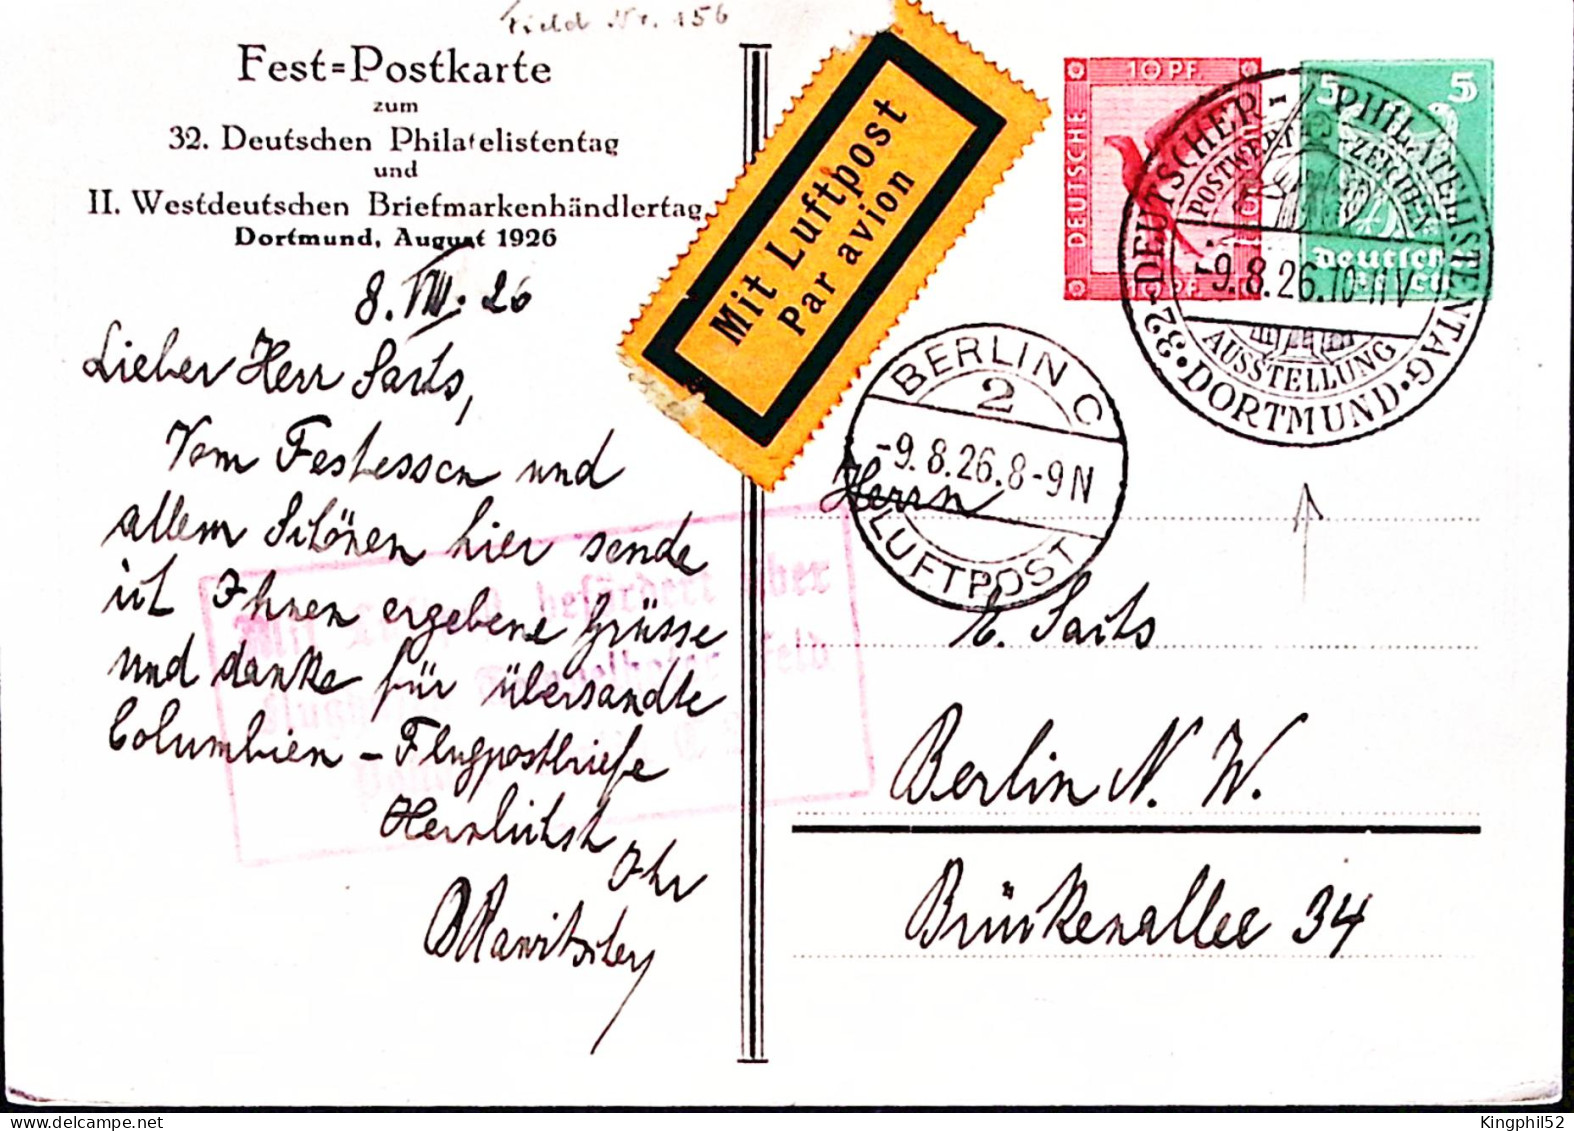 Feld Nr. 156
Fest=Postkarte
zum
32. Deutschen Philatelistentag
und
II. Westdeutschen Briefmarkenhändlertag,
Dortmund, August 1926
8. VIII. 26
Lieber Herr Sarts,
Vom Festessen und
allem Schönen hier sende
ich Ihnen ergebene Grüsse
und danke für übersandte
Columbien - Flugpostbriefe
Herzlichst Ihr
Mit Luftpost befördert über
Flughafen Tempelhofer Feld
Mit Luftpost
Par avion
10 PF.
DEUTSCHE
10 PF.
5 5
Deutsches
Reich
32. DEUTSCHER PHILATELISTENTAG
POSTWERTZEICHEN
-9.8.26.10-11V
AUSSTELLUNG
DORTMUND
BERLIN C
2
-9.8.26.8-9N
LUFTPOST
Herrn
Sarts
Berlin N. W.
Brückenallee 34
Kingphil52